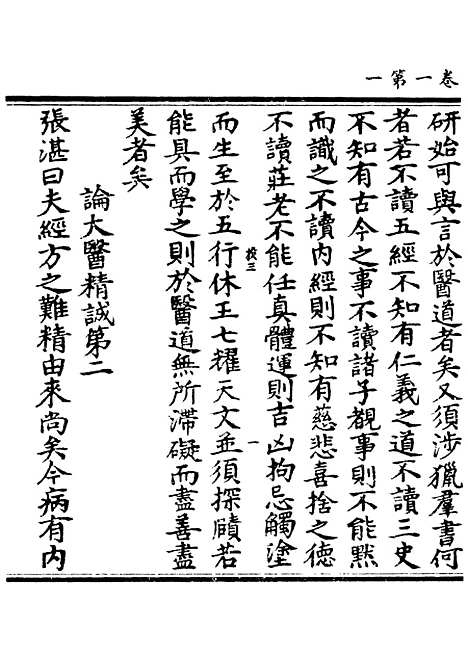 卷一第一
研始可與言於醫道者矣又須涉獵羣書何
者若不讀五經不知有仁義之道不讀三史
不知有古今之事不讀諸子覩事則不能默
而識之不讀内經則不知有慈悲喜捨之德
不讀莊老不能任真體運則吉凶拘忌觸塗
而生至於五行休王七耀天文並須探賾若
能具而學之則於醫道無所滯礙而盡善盡
美者矣
論大醫精誠第二
張湛曰夫經方之難精由來尚矣今病有内